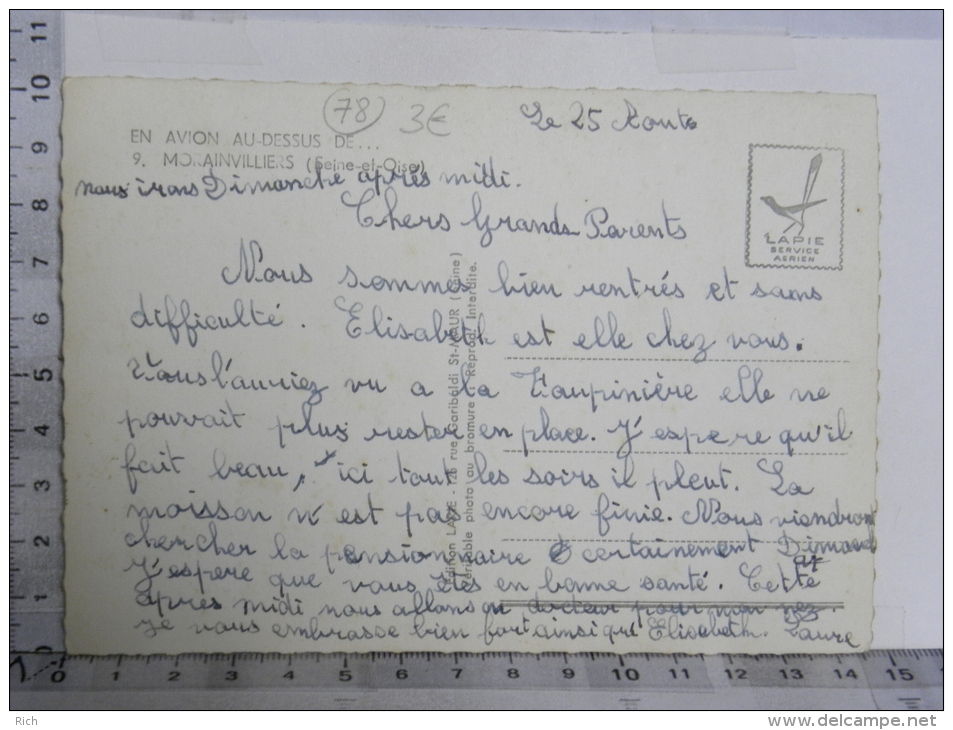 (78) 3€
Le 25 Aout
EN AVION AU-DESSUS DE...
9. MORAINVILLIERS (Seine-et-Oise)
nous irons Dimanche après midi.
Chers Grands Parents
LAPIE
SERVICE
AERIEN
Nous sommes bien rentrés et sans
difficulté. Elisabeth est elle chez vous.
Vous l'auriez vu a la Taupinière elle ne
pouvait plus rester en place. J'espere qu'il
fait beau, ici tout les soirs il pleut. La
moisson n'est pas encore finie. Nous viendrons
chercher la pensionnaire certainement Dimanch
J'espere que vous êtes en bonne santé. Cette
après midi nous allons au docteur pour mon nez.
Je vous embrasse bien fort ainsi qu' Elisabeth. Laure
Edition LAPIE - 126 rue Garibaldi St-MAUR (Seine)
Véritable photo au bromure - Reprod. Interdite.
11
10
9
8
7
6
5
4
3
2
1
0
0 1 2 3 4 5 6 7 8 9 10 11 12 13 14 15
Rich
http://www.delcampe.net